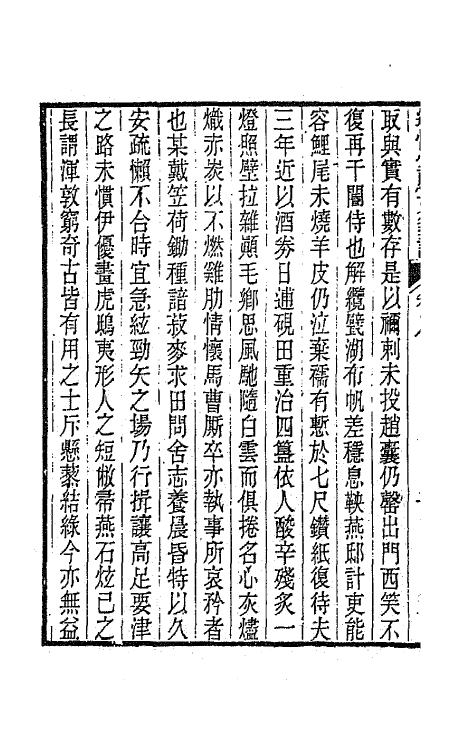 取與實有數存是以禰刺未投趙囊仍罄出門西笑不
復再干閽侍也解纜甓湖布帆差穩息鞅燕邸計更能
容鯉尾未燒羊皮仍泣棄襦有慙於七尺鑽紙復待夫
三年近以酒劵日逋硯田重治四簋依人酸辛殘炙一
燈照壁拉雜顚毛鄉思風馳隨白雲而俱捲名心灰燼
熾赤炭以不燃雞肋情懷馬曹厮卒亦執事所哀矜者
也某戴笠荷鋤種諳菽麥求田問舍志養晨昏特以久
安疏懶不合時宜急絃勁矢之場乃行揖讓高足要津
之路未慣伊優畫虎鴟夷形人之短敝帚燕石炫已之
長謂渾敦窮奇古皆有用之士斥懸藜結綠今亦無益